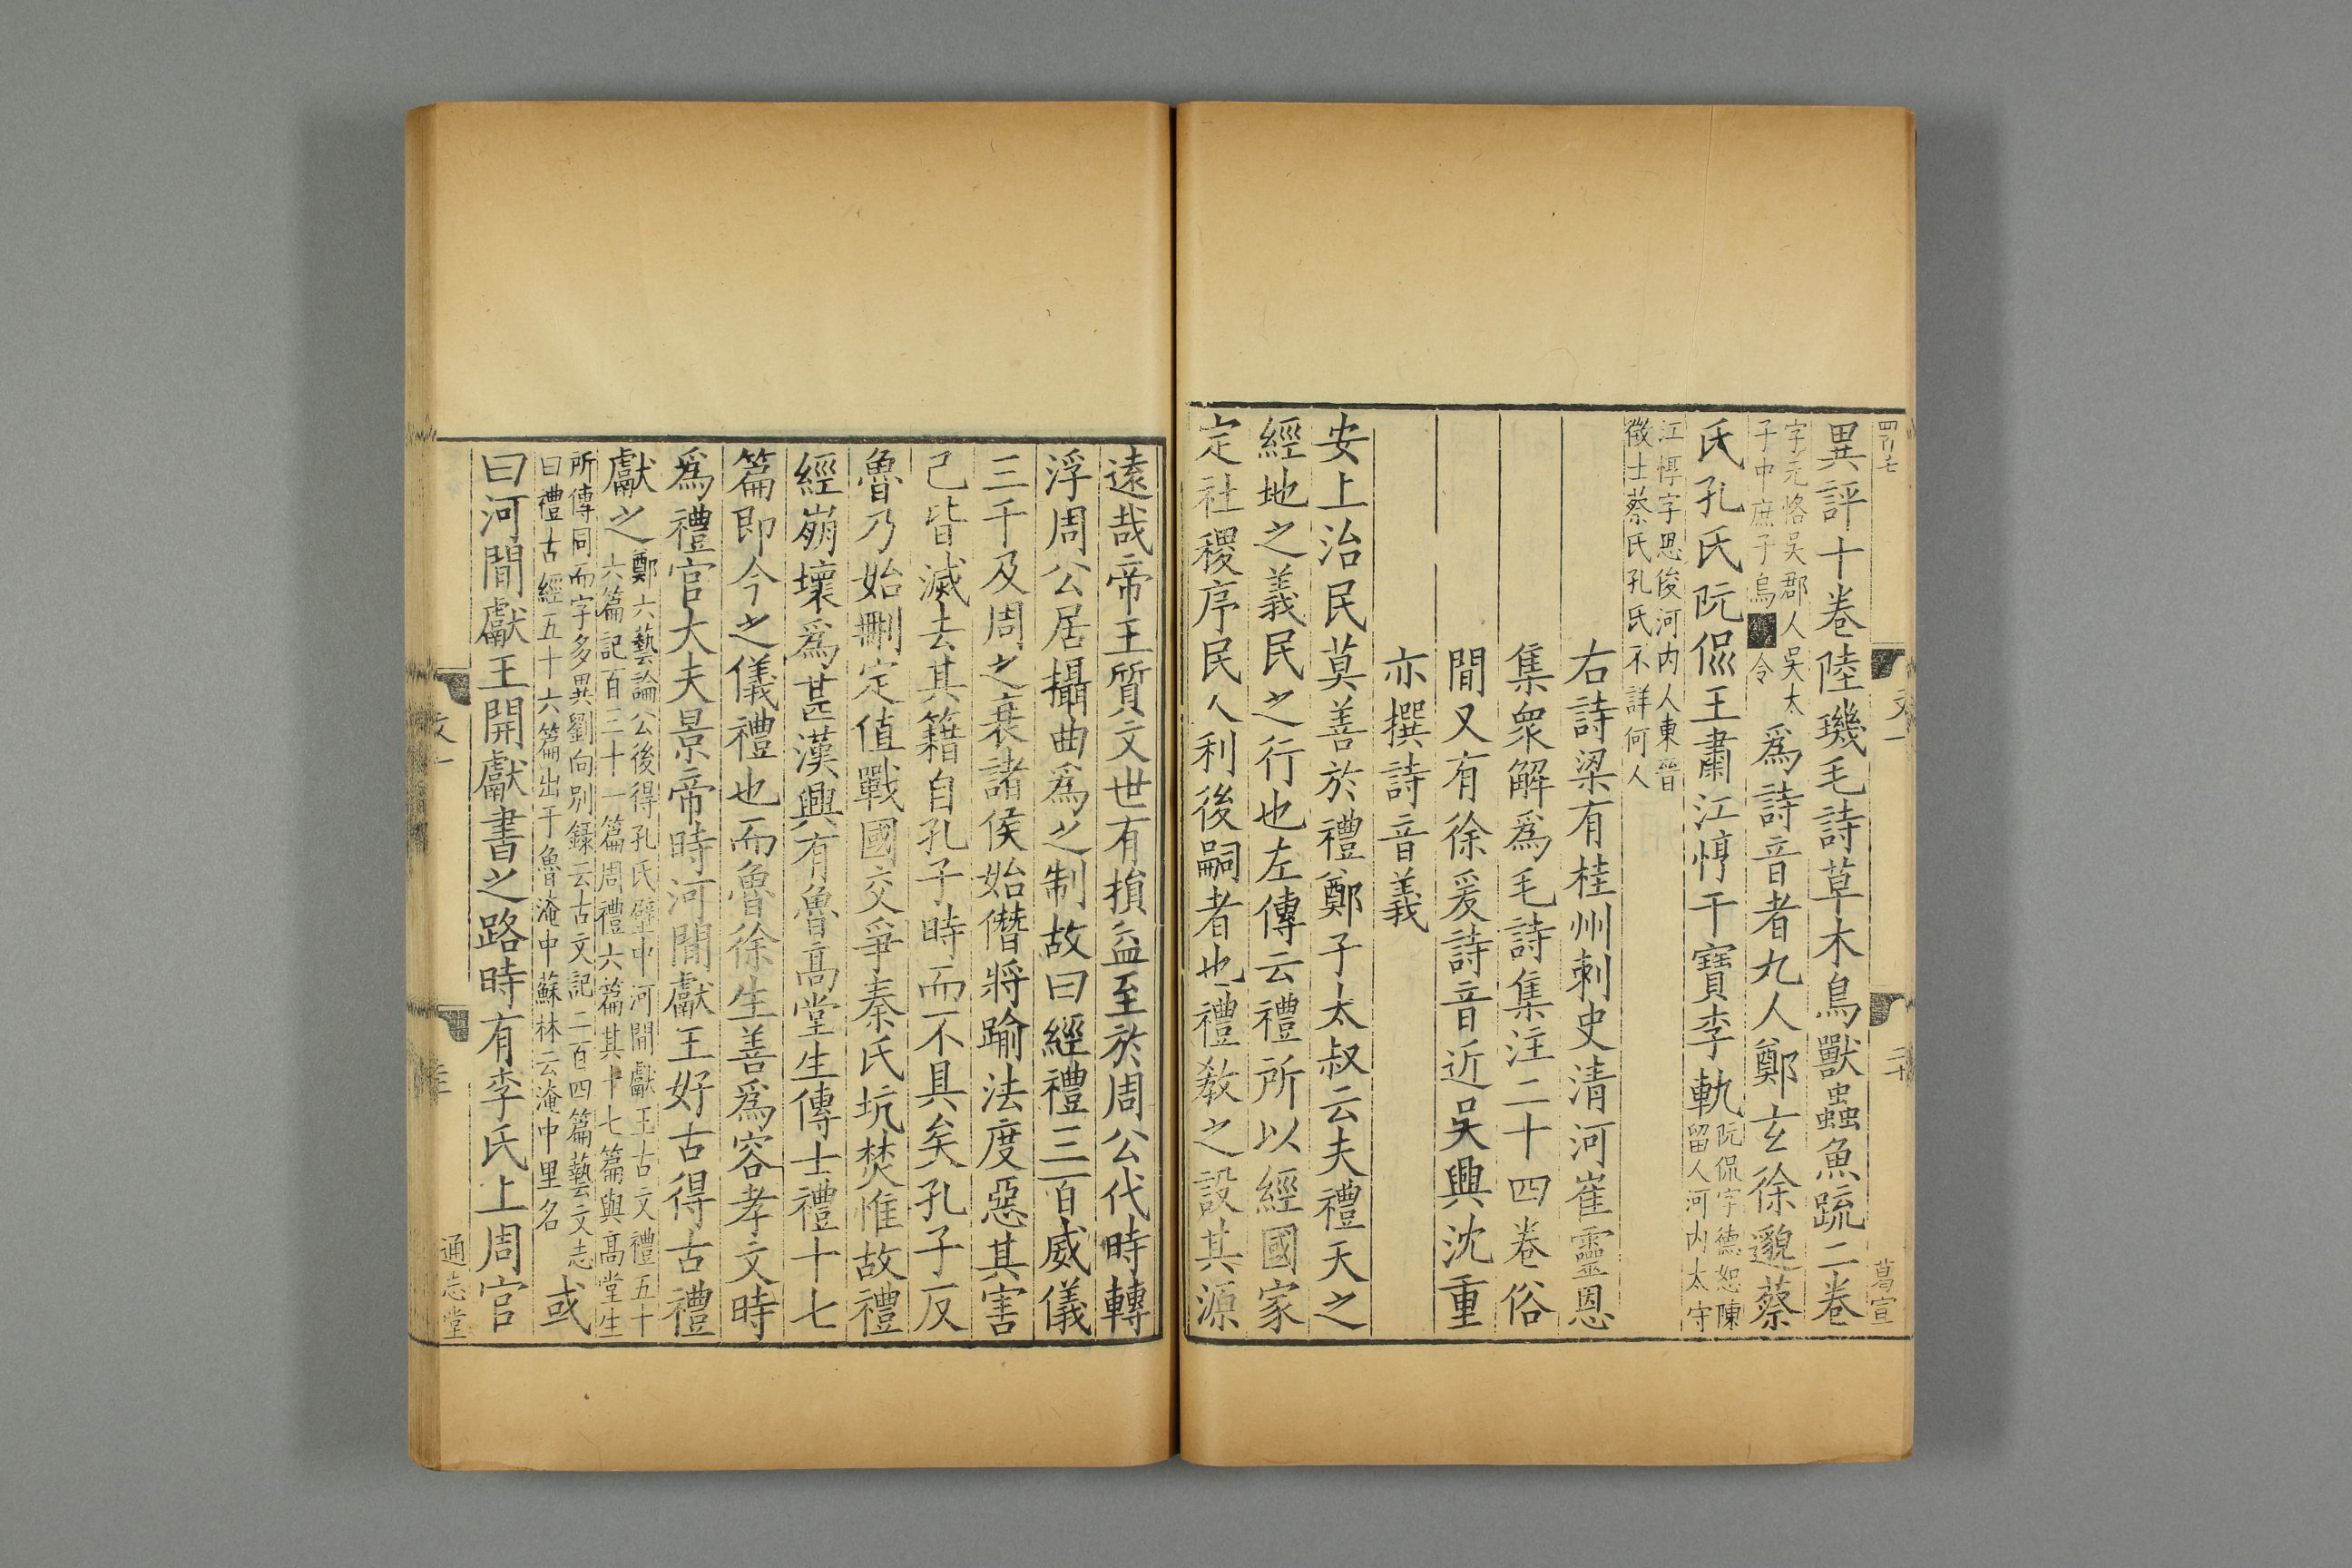 異評十卷陸璣毛詩草木鳥獸蟲魚疏二卷
字元恪吳郡人吳太
子中庶子烏令
爲詩音者九人鄭玄徐邈蔡
氏孔氏阮侃王肅江惇干寶李軌
阮侃字德恕陳
留人河内太守
江惇字思俊河内人東晉
徵士蔡氏孔氏不詳何人
右詩梁有桂州刺史清河崔靈恩
集衆解爲毛詩集注二十四卷俗
間又有徐爰詩音近吳興沈重
亦撰詩音義
安上治民莫善於禮鄭子太叔云夫禮天之
經地之義民之行也左傳云禮所以經國家
定社稷序民人利後嗣者也禮教之設其源
葛宣
遠哉帝王質文世有損益至於周公代時轉
浮周公居攝曲爲之制故曰經禮三百威儀
三千及周之衰諸侯始僭將踰法度惡其害
己皆滅去其籍自孔子時而不具矣孔子反
魯乃始刪定值戰國交爭秦氏坑焚惟故禮
經崩壞爲甚漢興有魯高堂生傳士禮十七
篇即今之儀禮也而魯徐生善爲容孝文時
爲禮官大夫景帝時河間獻王好古得古禮
獻之
鄭六藝論公後得孔氏壁中河間獻王古文禮五十
六篇記百三十一篇周禮六篇其十七篇與高堂生
所傳同而字多異劉向別錄云古文記二百四篇藝文志
曰禮古經五十六篇出于魯淹中蘇林云淹中里名
或
曰河間獻王開獻書之路時有李氏上周官
通志堂